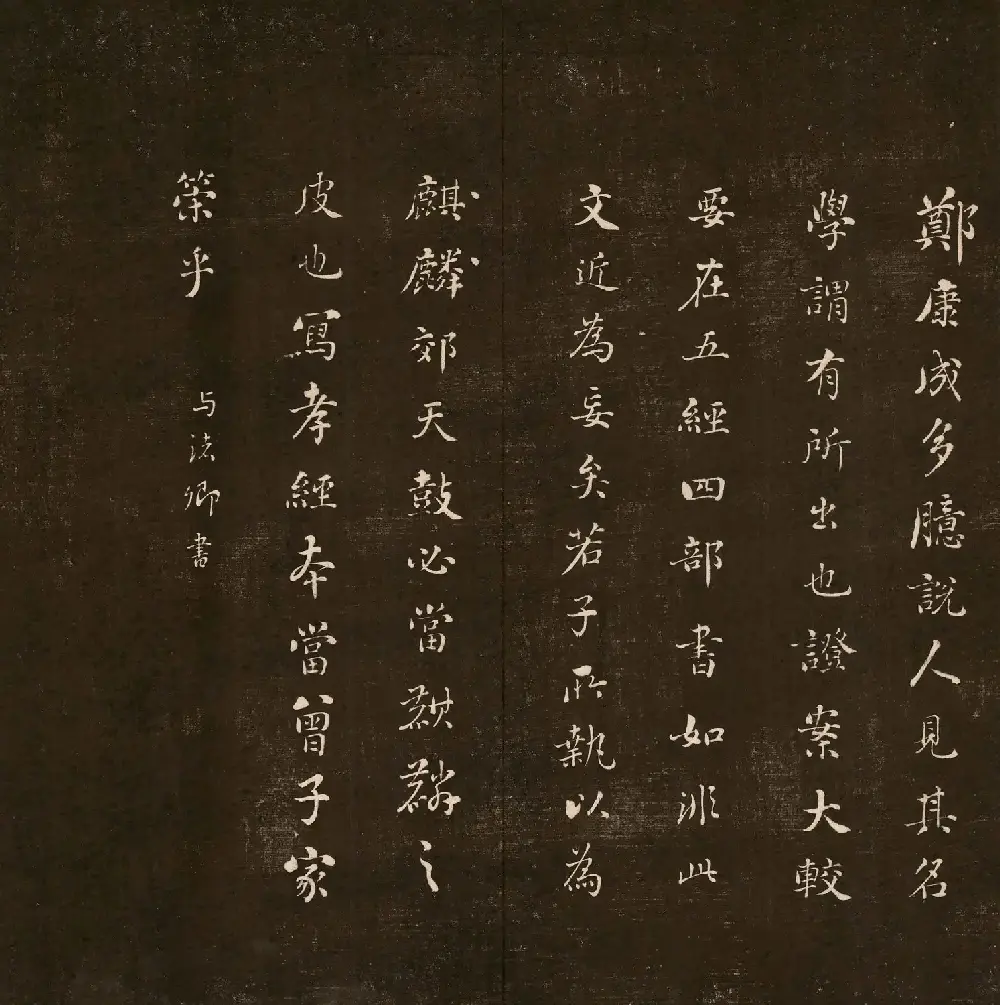 鄭康成多臆說人見其名
學謂有所出也證案大較
要在五經四部書如非此
文近為妄矣若子所執以為
麒麟郊天鼓必當麒麟之
皮也寫孝經本當曾子家
策乎
与法卿書